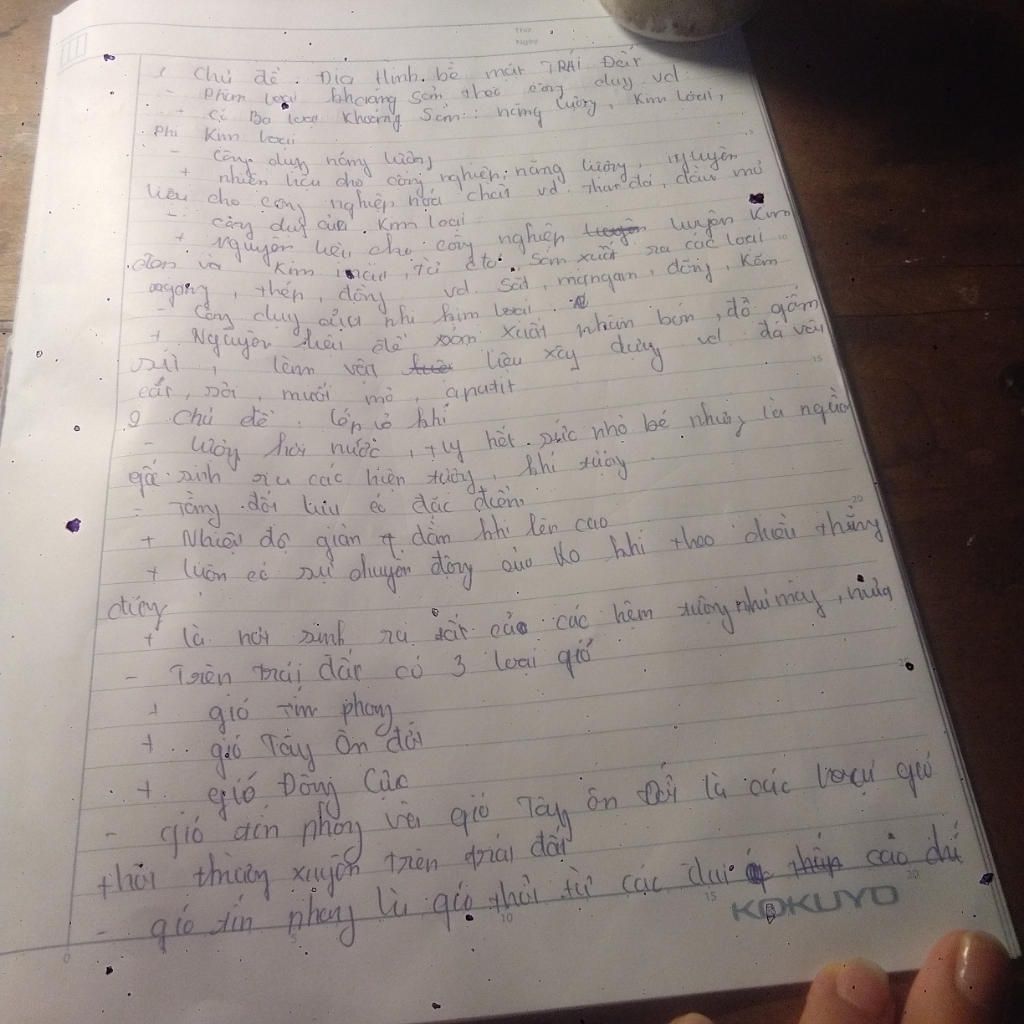 Thứ
Ngày
1 Chủ đề. Địa Hình bề mặt TRÁI ĐẤT
- Phân loại khoáng sản theo công dụng vd
+ Có Ba loại khoáng sản: năng lượng, kim loại,
Phi Kim loại
- công dụng năng lượng
+ nhiên liệu cho công nghiệp năng lượng, nguyên
liệu cho công nghiệp hoá chất vd than đá, dầu mỏ
- công dụng của kim loại
+ Nguyên liệu cho công nghiệp luyện kim
đen và kim màu, từ đó sản xuất ra các loại
gang, thép, đồng vd sắt, mangan, đồng, kẽm
- Công dụng của phi kim loại.
+ Nguyên liệu để sản xuất phân bón, đồ gốm
sứ, làm vật liệu xây dựng vd đá vôi
cát, sỏi, muối mỏ, apatit
2 Chủ đề. lớp vỏ khí
- lượng hơi nước, tuy hết sức nhỏ bé nhưng là nguồn
gốc sinh ra các hiện tượng, khí tượng
- Tầng đối lưu có đặc điểm
+ Nhiệt độ giảm dần khi lên cao
+ luôn có sự chuyển động của ko khí theo chiều thẳng
đứng
+ là nơi sinh ra tất cả các hiện tượng như mây, mưa
- Trên trái đất có 3 loại gió
+ gió Tín phong
+ gió Tây Ôn đới
+ gió Đông Cực
- gió tín phong và gió Tây ôn đới là các loại gió
thổi thường xuyên trên trái đất
- gió tín phong là gió thổi từ các đai cao chí
KOKUYO